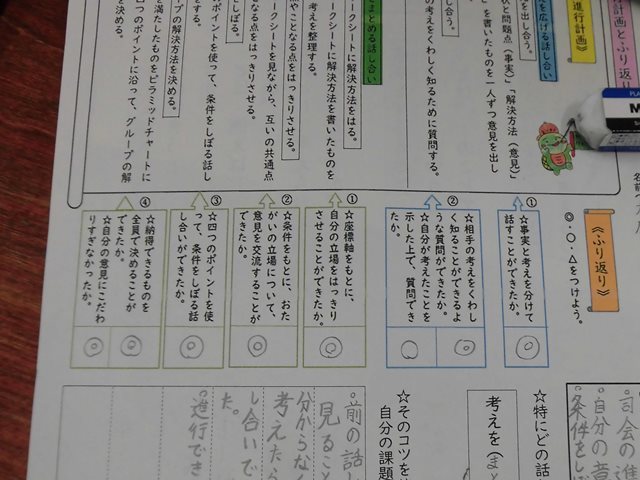 計画とふり返り
進行計画》
を広げる話し合い
を出し合う。
状と問題点（事実）」「解決方法（意見）」
」を書いたものを一人ずつ意見を出し
合う。
の考えをくわしく知るために質問する。
まとめる話し合い
ークシートに解決方法をはる。
ークシートに解決方法を書いたものを
考えを整理する。
やことなる点をはっきりさせる。
ークシートを見ながら、互いの共通点
なる点をはっきりさせる。
しぼる。
ポイントを使って、条件をしぼる話し
する。
プの解決方法を決める。
を満たしたものをピラミッドチャートに
四つのポイントに沿って、グループの解
を決める。
《ふり返り》
◎・○・△をつけよう。
①
☆事実と考えを分けて
話すことができたか。
②
☆相手の考えをくわし
く知ることができるよ
うな質問ができたか。
☆自分が考えたことを
示した上で、質問でき
たか。
①
☆座標軸をもとに、
自分の立場をはっきり
させることができたか。
②
☆条件をもとに、おた
がいの立場について、
意見を交流することが
できたか。
③
☆四つのポイントを使
って、条件をしぼる話
し合いができたか。
④
☆納得できるものを
全員で決めることが
できたか。
☆自分の意見にこだわ
りすぎなかったか。
司会の進
・自分の意
・条件をしぼ
☆特にどの話
考えを（ま
☆そのコツを
自分の課題
・前の話し
見ること
分からなく
考えたら
し合いで
た。
・進行でき